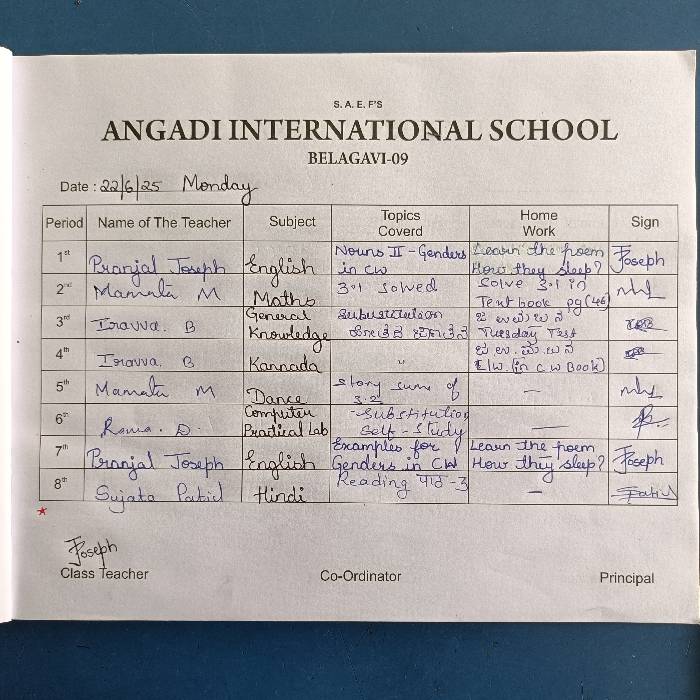 S. A. E. F'S
ANGADI INTERNATIONAL SCHOOL
BELAGAVI-09
Date : 22/6/25 Monday
Period Name of The Teacher Subject Topics Coverd Home Work Sign
1st Pranjal Joseph English Nouns II - Genders in CW Learn the poem How they sleep? Joseph
2nd Mamata M Maths 3.1 solved Solve 3.1 in Text book pg (46)
3rd Iravva. B General Knowledge Tuesday Test
4th Iravva. B Kannada " C/W. (in C W Book)
5th Mamata M Dance Story sums of 3.2 —
6th Roma. D. Computer Practical Lab - Substitution Self - Study —
7th Pranjal Joseph English Examples for Genders in CW Learn the poem How they sleep? Joseph
8th Sujata Patil Hindi Reading पाठ - 3 — Patil
Joseph
Class Teacher Co-Ordinator Principal